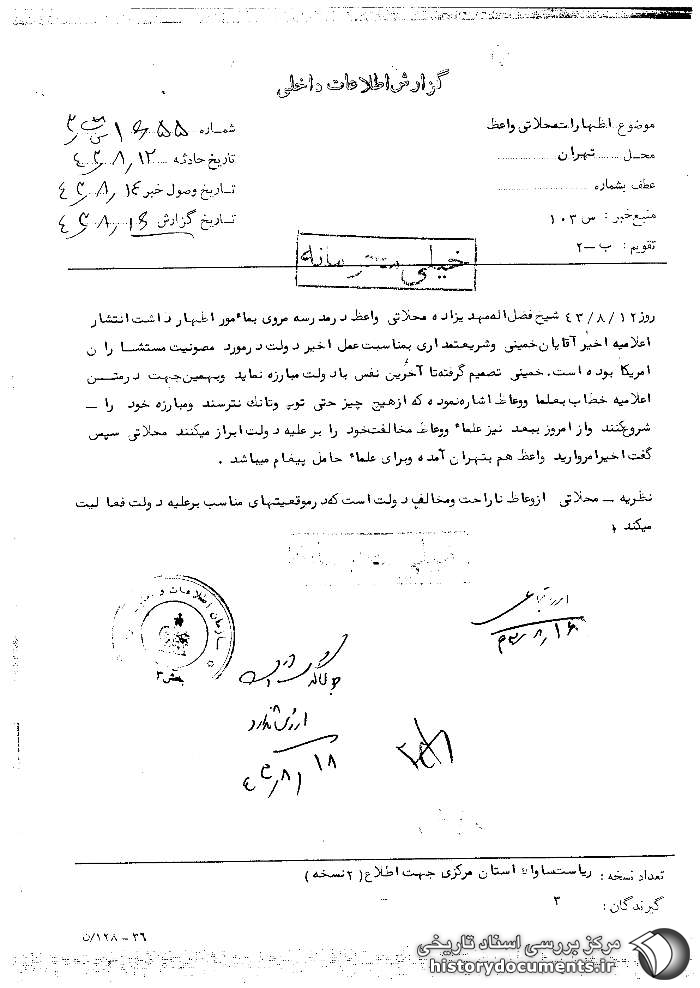 گزارش اطلاعات داخلی
موضوع : اظهارات محلاتی واعظ
محل ...... تهران
عطف بشماره
منبع خبر : س ۱۰۳
تقویم : ب – ۲
شماره
تاریخ حادثه ۴۳/۸/۱۲
تاریخ وصول خبر ۴۳/۸/۱۴
تاریخ گزارش ۴۳/۸/۱۶
خیلی محترمانه
روز ۴۳/۸/۱۲ شیخ فضل اله مهدیزاده محلاتی واعظ درمدرسه مروی بمأمور اظهار داشت انتشار
اعلامیه اخیر آقایان خمینی وشریعتمداری بمناسبت عمل اخیر دولت درمورد مصونیت مستشاران
امریکا بوده است . خمینی تصمیم گرفته تا آخرین نفس با دولت مبارزه نماید وبهمین جهت درمتن
اعلامیه خطاب بعلما ووعاظ اشاره نموده که ازهیچ چیز حتی توپ وتانک نترسند ومبارزه خود را –
شروع کنند واز امروز ببعد نیز علماء ووعاظ مخالفت خود را بر علیه دولت ابراز میکنند محلاتی سپس
گفت اخیرا مروارید واعظ هم بتهران آمده وبرای علماء حامل پیغام میباشد .
نظریه – محلاتی ازوعاظ ناراحت ومخالف دولت است که درموقعیتهای مناسب برعلیه دولت فعالیت
میکند
۴۳/۸/۱۶
سازمان اطلاعات و
بخش ۳
ارزش ندارد
۴۳/۸/۱۸
تعداد نسخه : ریاست ساواک استان مرکزی جهت اطلاع ( ۲ نسخه )
گیرندگان : ۳
۳۶ – ۱۲۸/ن
مرکز بررسی اسناد تاریخی
historydocuments.ir